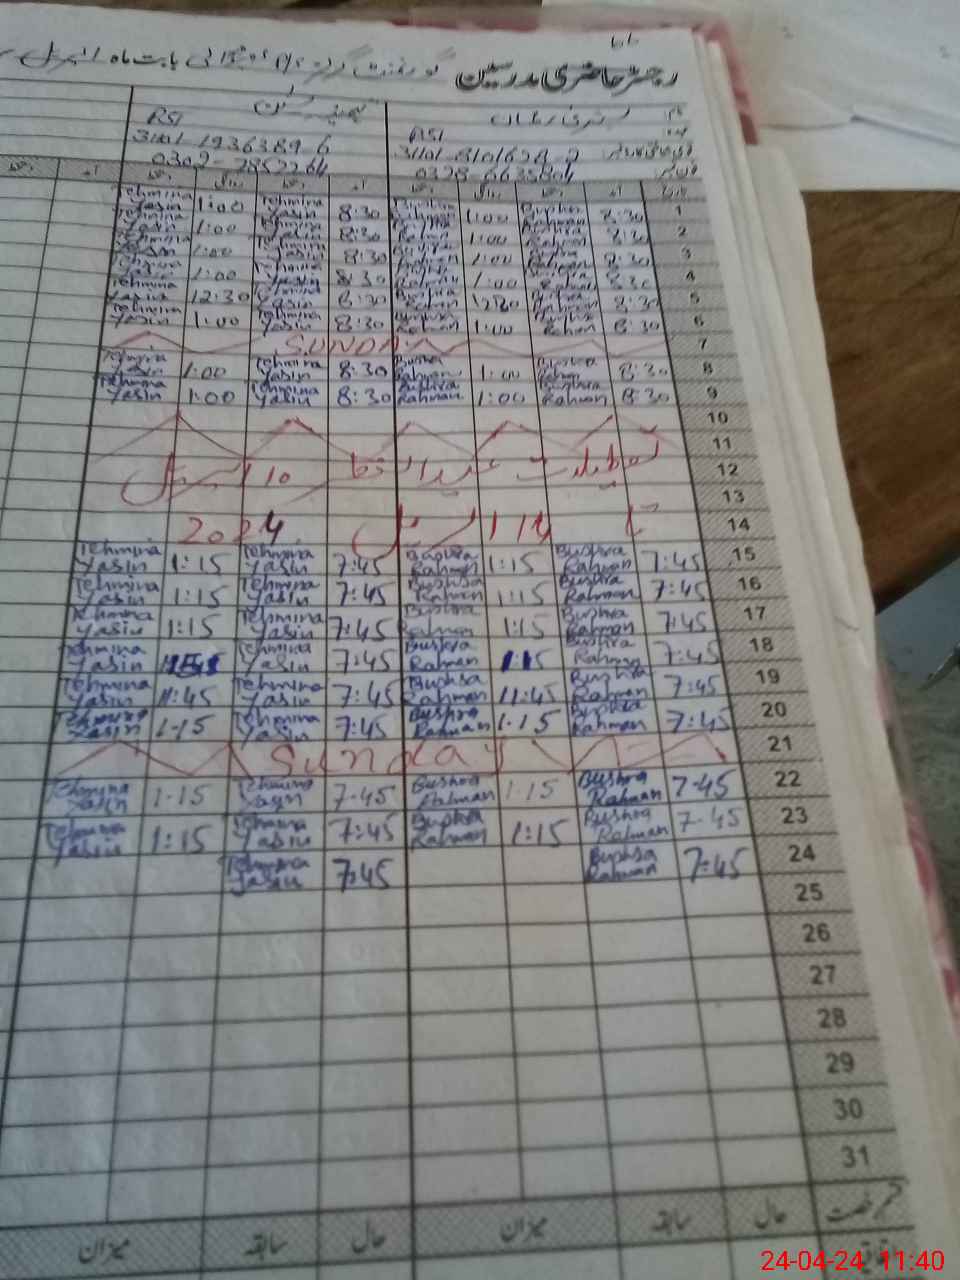 رجسٹر حاضری مدرسین گورنمنٹ گرلز بابت ماہ اپریل
نام
RSI RSI
31101-1936389-6
0302-7852264 0328-6635804
1 8:30 Bushra Rahman 1:00 Bushra Rahman 8:30 Tehmina Yasin 1:00 Tehmina Yasin
2 8:30 Bushra Rahman 1:00 Bushra Rahman 8:30 Tehmina Yasin 1:00 Tehmina Yasin
3 8:30 Bushra Rahman 1:00 Bushra Rahman 8:30 Tehmina Yasin 1:00 Tehmina Yasin
4 8:30 Bushra Rahman 1:00 Bushra Rahman 8:30 Tehmina Yasin 1:00 Tehmina Yasin
5 8:30 Bushra Rahman 12:30 Bushra Rahman 8:30 Tehmina Yasin 12:30 Tehmina Yasin
6 8:30 Bushra Rahman 1:00 Bushra Rahman 8:30 Tehmina Yasin 1:00 Tehmina Yasin
7 SUNDAY
8 8:30 Bushra Rahman 1:00 Bushra Rahman 8:30 Tehmina Yasin 1:00 Tehmina Yasin
9 8:30 Bushra Rahman 1:00 Bushra Rahman 8:30 Tehmina Yasin 1:00 Tehmina Yasin
10
11
12 تعطیلات عید الفطر 10 اپریل
13
14 تا 14 اپریل 2024
15 7:45 Bushra Rahman 1:15 Bushra Rahman 7:45 Tehmina Yasin 1:15 Tehmina Yasin
16 7:45 Bushra Rahman 1:15 Bushra Rahman 7:45 Tehmina Yasin 1:15 Tehmina Yasin
17 7:45 Bushra Rahman 1:15 Bushra Rahman 7:45 Tehmina Yasin 1:15 Tehmina Yasin
18 7:45 Bushra Rahman 1:15 Bushra Rahman 7:45 Tehmina Yasin Tehmina Yasin
19 7:45 Bushra Rahman 11:45 Bushra Rahman 7:45 Tehmina Yasin 11:45 Tehmina Yasin
20 7:45 Bushra Rahman 1-15 Bushra Rahman 7:45 Tehmina Yasin 1-15 Tehmina Yasin
21 Sunday
22 7-45 Bushra Rahman 1-15 Bushra Rahman 7-45 Tehmina Yasin 1-15 Tehmina Yasin
23 7-45 Bushra Rahman 1:15 Bushra Rahman 7:45 Tehmina Yasin 1:15 Tehmina Yasin
24 7:45 Bushra Rahman 7:45 Tehmina Yasin
25
26
27
28
29
30
31
حال سابقہ میزان حال سابقہ میزان
24-04-24 11:40